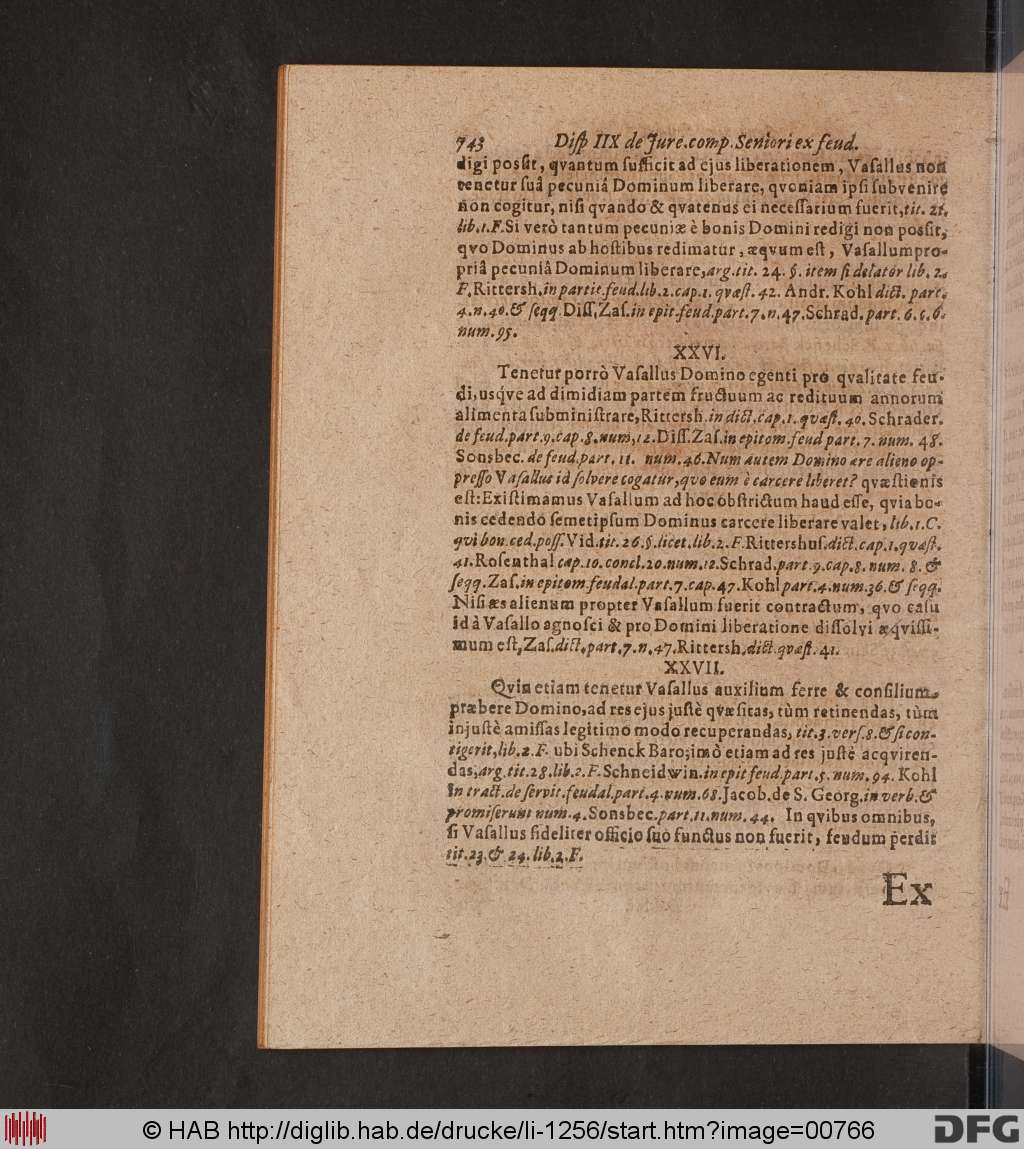 743 Diſp IIX de Jure.comp.Seniori ex feud.
digi poſsit, qvantum ſufficit ad ejus liberationem, Vaſallus non
tenetur ſuâ pecuniâ Dominum liberare, qvoniam ipſi ſubvenire
non cogitur, niſi qvando & qvatenus ei neceſſarium fuerit,tit. 21.
lib.1.F.Si verò tantum pecuniæ è bonis Domini redigi non poſsit,
qvo Dominus ab hoſtibus redimatur, æqvum eſt, Vaſallum pro-
priâ pecuniâ Dominum liberare,arg.tit. 24. §. item ſi delator lib. 2.
F.Rittersh.in partit.feud.lib.2.cap.1. qvæſt. 42. Andr. Kohl dict. part.
4.n.40.& ſeqq.Diſſ.Zaſ.in epit.feud.part.7.n.47.Schrad.part. 6.c.6.
num.95.
XXVI.
Tenetur porrò Vaſallus Domino egenti pro qvalitate feu-
di,usqve ad dimidiam partem fructuum ac redituum annorum
alimenta ſubminiſtrare,Rittersh.in dict.cap.1.qvæſt.40.Schrader.
de feud.part.9.cap.8.num,12.Diſſ.Zaſ.in epitom.feud part.7.num. 48.
Sonsbec.de feud.part. 11. num.46.Num autem Domino ære alieno op-
preſſo Vaſallus id ſolvere cogatur,qvo eum è carcere liberet? qvæſtionis
eſt:Exiſtimamus Vaſallum ad hoc obſtrictum haud eſſe, qvia bo-
nis cedendo ſemetipſum Dominus carcere liberare valet, lib.1.C.
qvi bon.ced.poſſ.Vid.tit.26.§.licet.lib.2.F.Rittershuſ.dict.cap.1.qvæſt.
41.Roſenthal cap.10.concl.20.num.12.Schrad.part.9.cap.8.num. 8. &
ſeqq.Zaſ.in epitom.feudal.part.7.cap.47.Kohl part.4.num.36.& ſeqq.
Niſi æs alienum propter Vaſallum fuerit contractum, qvo caſu
id à Vaſallo agnoſci & pro Domini liberatione diſſolvi æqviſſi-
mum eſt,Zaſ.dict.part.7.n.47.Rittersh.dict.qvæſt.41.
XXVII.
Qvin etiam tenetur Vaſallus auxilium ferre & conſilium
præbere Domino,ad res ejus juſtè qvæſitas, tùm retinendas, tùm
injuſtè amiſſas legitimo modo recuperandas, tit.3.verſ.8.& ſi con-
tigerit,lib.2.F. ubi Schenck Baro;imò etiam ad res juſtè acqviren-
das,arg.tit.28.lib.2.F.Schneidwin.in epit feud.part.5.num.94. Kohl
in tract.de ſervit.feudal.part.4.num.68.Jacob.de S. Georg.in verb.&
promiſerunt num.4.Sonsbec.part.11.num.44. In qvibus omnibus,
ſi Vaſallus fideliter officio ſuo functus non fuerit, feudum perdit
tit.23.& 24.lib.2.F.
Ex
© HAB http://diglib.hab.de/drucke/li-1256/start.htm?image=00766
DFG